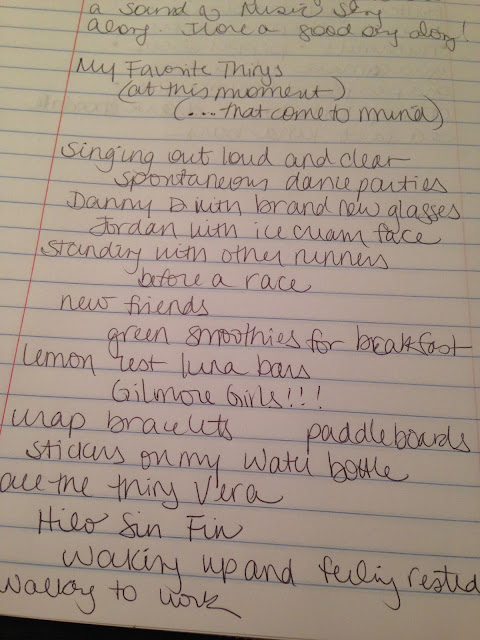 a Sound of Music Sing
along. I love a good sing along!
My Favorite Things
(at this moment)
(...that come to mind)
singing out loud and clear
spontaneous dance parties
Danny D with brand new glasses
Jordan with ice cream face
standing with other runners
before a race
new friends
green smoothies for breakfast
lemon zest luna bars
Gilmore Girls!!!
wrap bracelets paddleboards
stickers on my water bottle
all the thing Vera
Hilo Sin Fin
waking up and feeling rested
walking to work